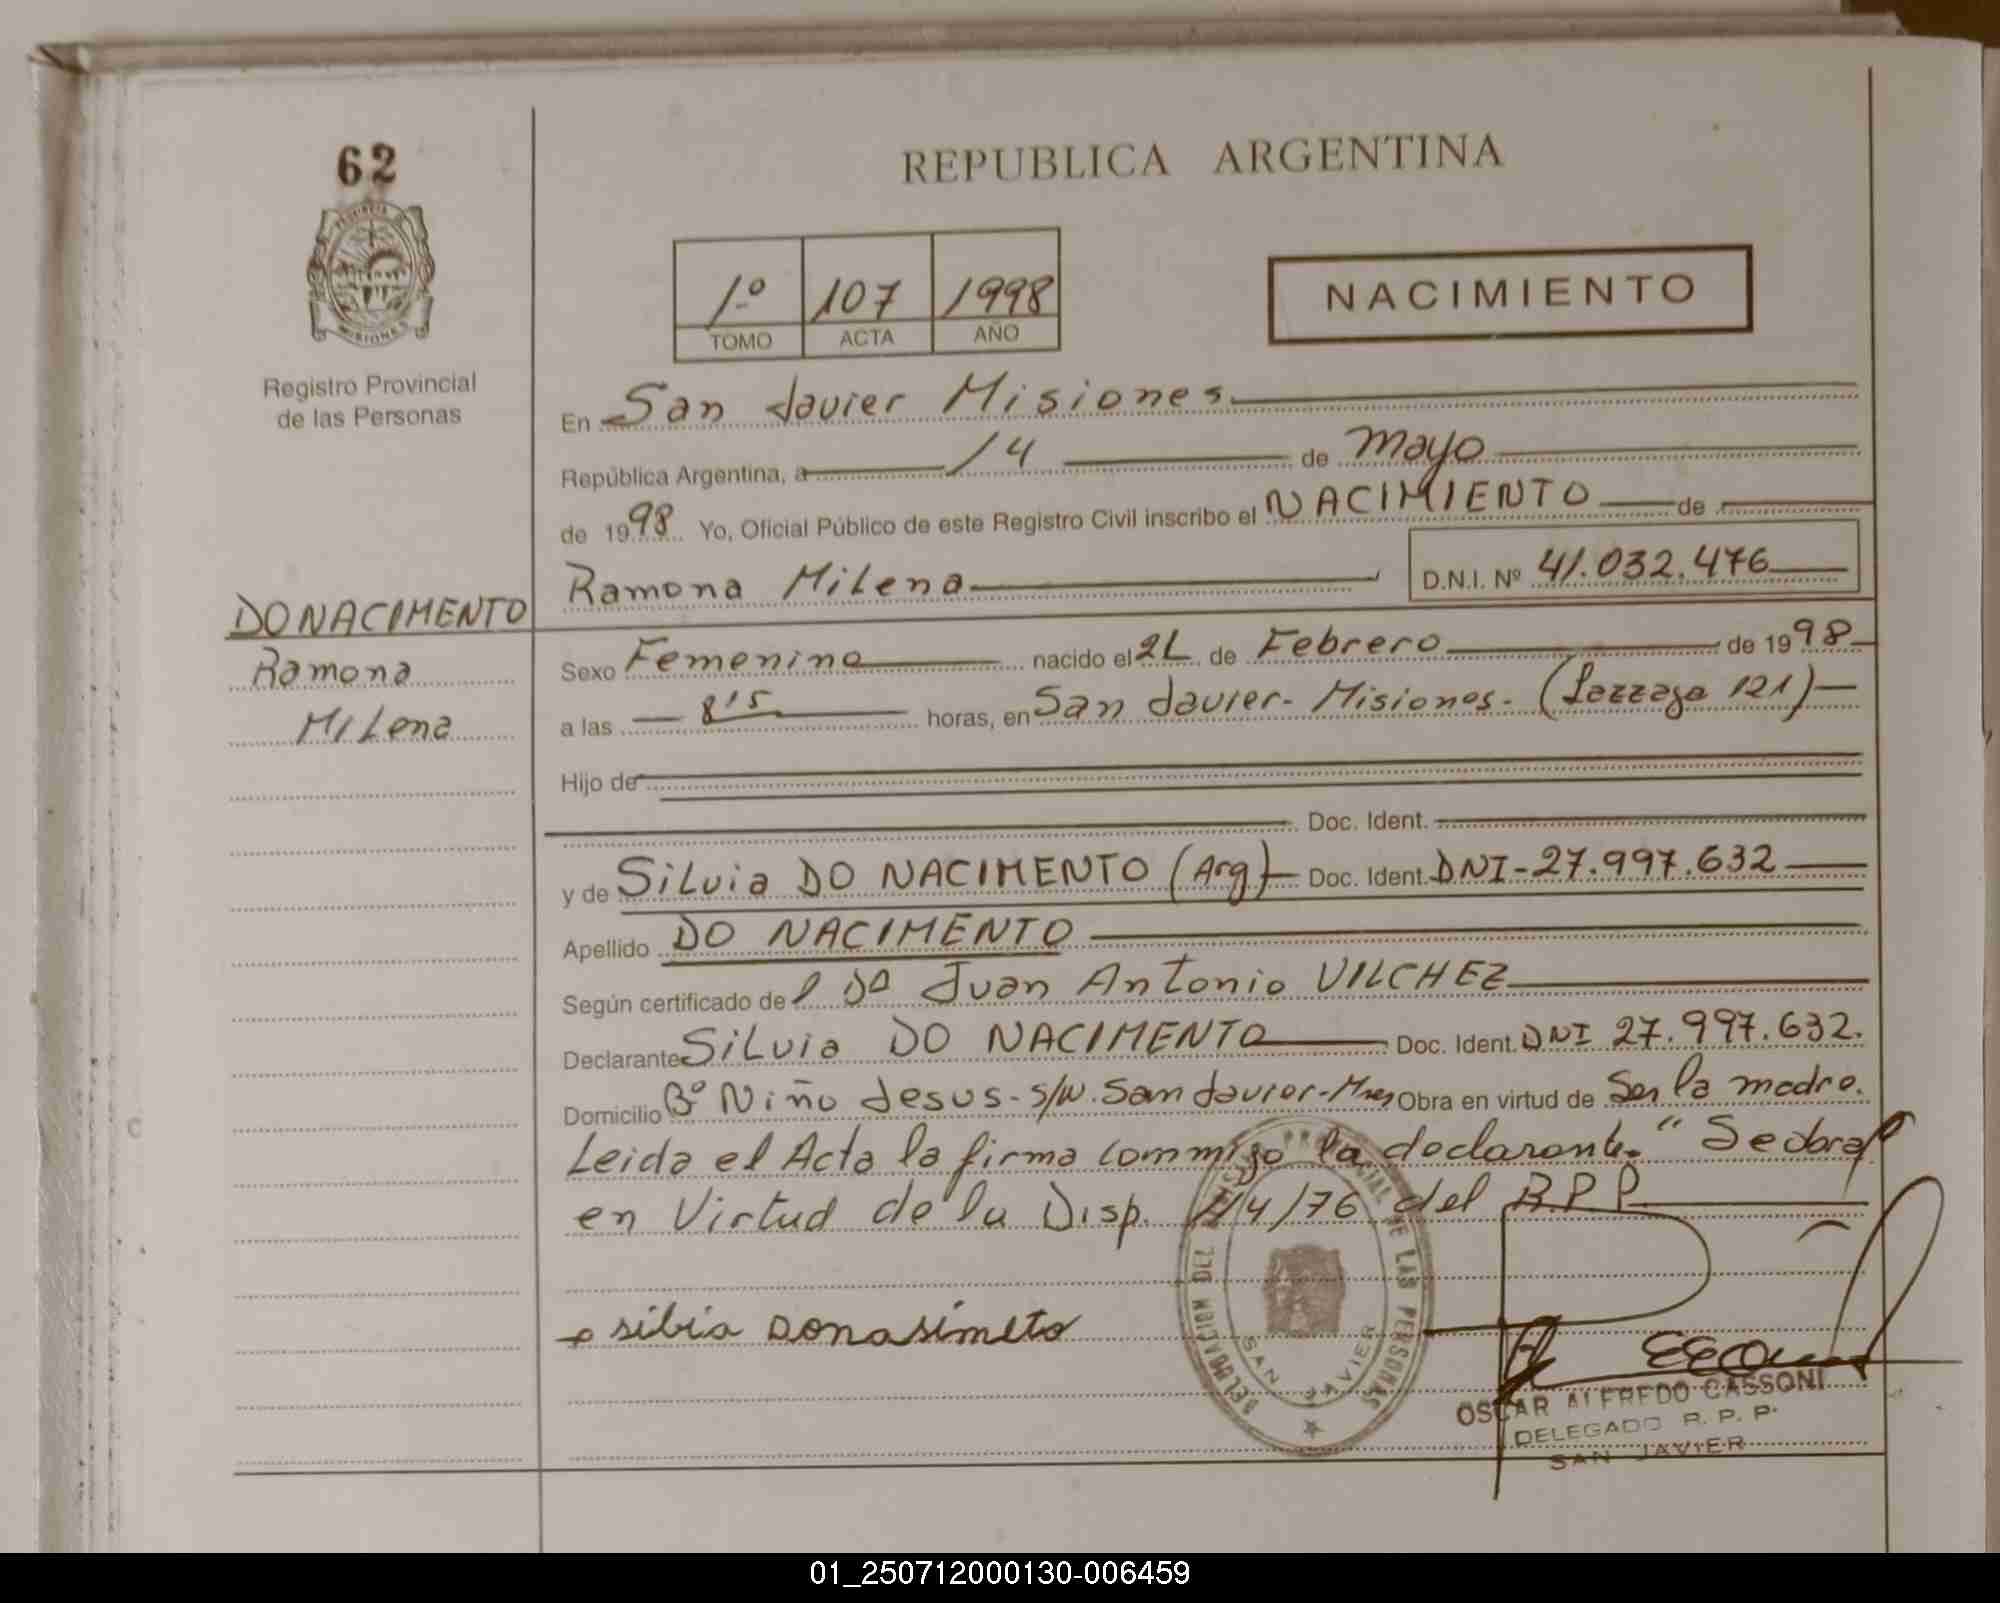 62
REPUBLICA ARGENTINA
1º 107 1998
TOMO ACTA AÑO
NACIMIENTO
Registro Provincial
de las Personas
En San Javier Misiones
República Argentina, a 14 de Mayo
de 1998 Yo, Oficial Público de este Registro Civil inscribo el NACIMIENTO de
Ramona Milena D.N.I. Nº 41.032.476
DO NACIMENTO
Ramona
Milena
Sexo Femenino nacido el de Febrero de 1998
a las 8'15 horas, en San Javier- Misiones- ( 121)
Hijo de
Doc. Ident.
y de Silvia DO NACIMENTO (Arg) Doc. Ident. DNI-27.997.632
Apellido DO NACIMENTO
Según certificado de l Dº Juan Antonio VILCHEZ
Declarante Silvia DO NACIMENTO Doc. Ident. DNI 27.997.632.
Domicilio Bº Niño Jesus- s/n. San Javier-Mnes Obra en virtud de Ser la madre.
Leida el Acta la firma conmigo la declarante. "Se
en Virtud de la Disp. /76 del R.P.P
sibia Donasimeto
DELEGACION DEL REGISTRO PROVINCIAL DE LAS PERSONAS
SAN JAVIER
OSCAR ALFREDO CASSONI
DELEGADO R. P. P.
SAN JAVIER
01_250712000130-006459